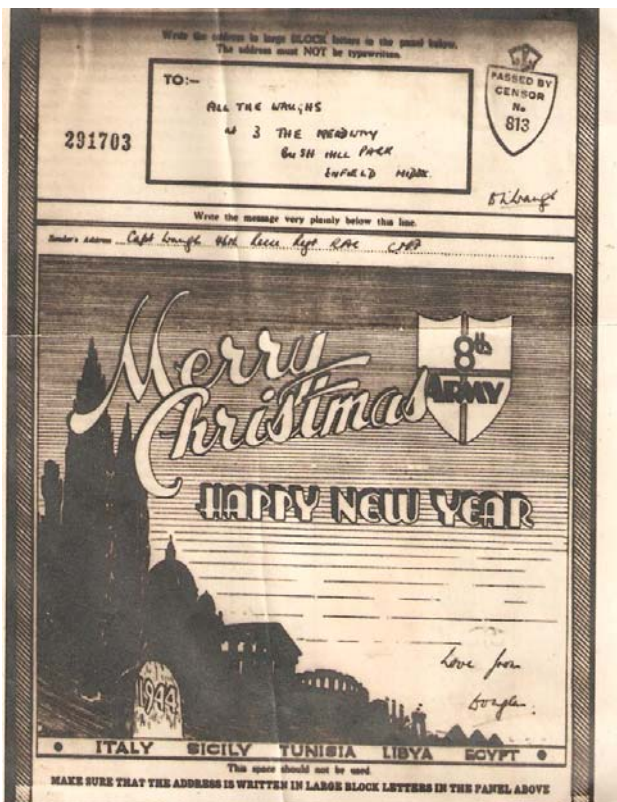 Write the address in large BLOCK letters in the panel below.
The address must NOT be typewritten.
TO:-
ALL THE WAUGHS
at 3 THE MEADWAY
BUSH HILL PARK
ENFIELD MIDDX.
291703
PASSED BY
CENSOR
No
813
D Waugh
Write the message very plainly below this line.
Sender's Address Capt Waugh 46th Recce Regt RAC CMF
Merry
Christmas
8th
ARMY
HAPPY NEW YEAR
1944
Love from
Douglas.
ITALY SICILY TUNISIA LIBYA EGYPT
This space should not be used.
MAKE SURE THAT THE ADDRESS IS WRITTEN IN LARGE BLOCK LETTERS IN THE PANEL ABOVE